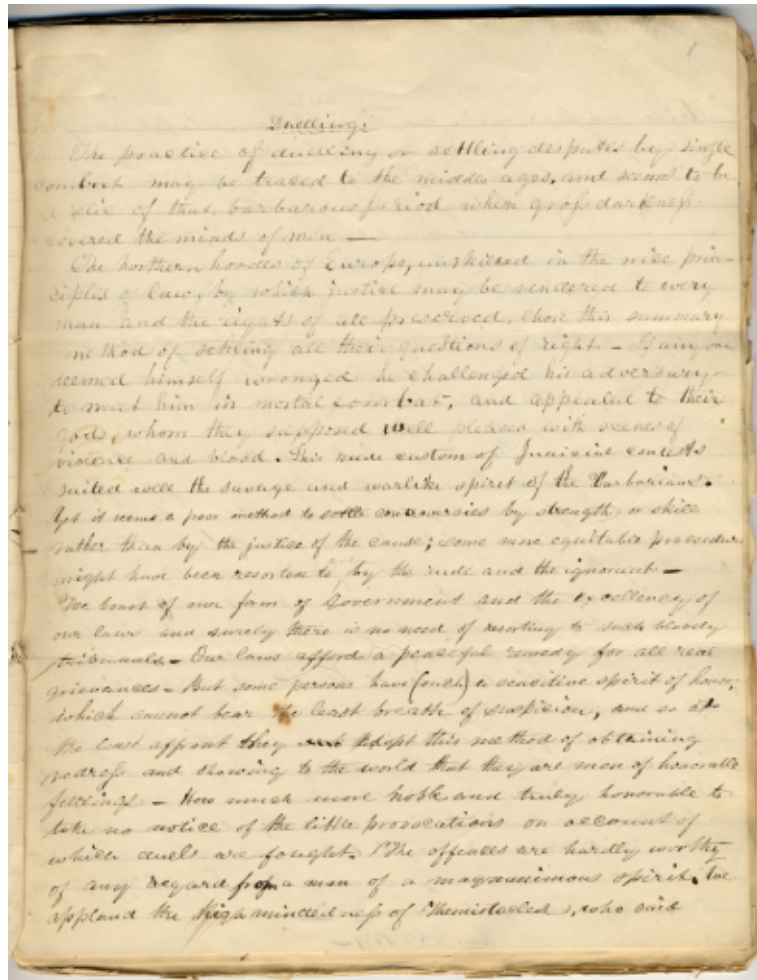 1
Duelling.
The practice of duelling or settling disputes by single
combat may be traced to the middle ages, and seems to be
a relic of that barbarous period when gross darkness
covered the minds of men —
The northern hordes of Europe, unskilled in the nice prin-
ciples of law, by which justice may be rendered to every
man and the rights of all preserved, chose this summary
method of settling all their questions of right. — If any one
deemed himself wronged he challenged his adversary
to meet him in mortal combat, and appealed to their
gods, whom they supposed well pleased with scenes of
violence and blood. This rude custom of Judicial contests
suited well the savage and warlike spirit of the Barbarians.
Yet it seems a poor method to settle controversies by strength or skill
rather than by the justice of the cause; some more equitable procedure
might have been resorted to by the rude and the ignorant —
We boast of our form of Government and the excellency of
our laws and surely there is no need of resorting to such bloody
tribunals — Our laws afford a peaceful remedy for all real
grievances — But some persons have (such) a sensitive spirit of honor,
which cannot bear the least breath of suspicion, and so at
the least affront they adopt this method of obtaining
redress and showing to the world that they are men of honorable
feelings — How much more noble and truly honorable to
take no notice of the little provocations on account of
which duels are fought. The offences are hardly worthy
of any regard from a man of a magnanimous spirit. We
applaud the high mindedness of Themistocles, who said